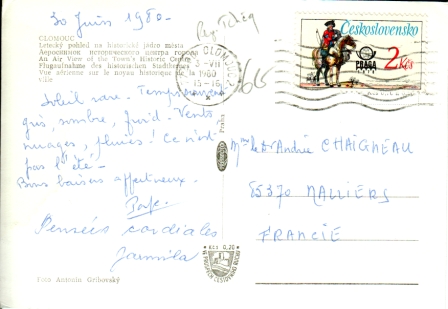 30 Juin 1980.
Rep. Tchèq
OLOMOUC
Letecký pohled na historické jádro města
An Air View of the Town's Historic Centre
Flugaufnahme des historischen Stadtkernes
Vue aérienne sur le noyau historique de la
ville
Soleil rare. Temps
gris, sombre, froid. Vents
nuages, pluies! Ce n'est
pas l'été-
Bons baisers affectueux.
Pensées cordiales
Jarmila
Foto Antonín Gribovský
OLOMOUC
-VII
1980
15-16
Praha
KČS 0,20
Československo
PRAGA
2 Kčs
Mme et Mr André CHAIGNEAU
85370 NALLIERS
FRANCIE